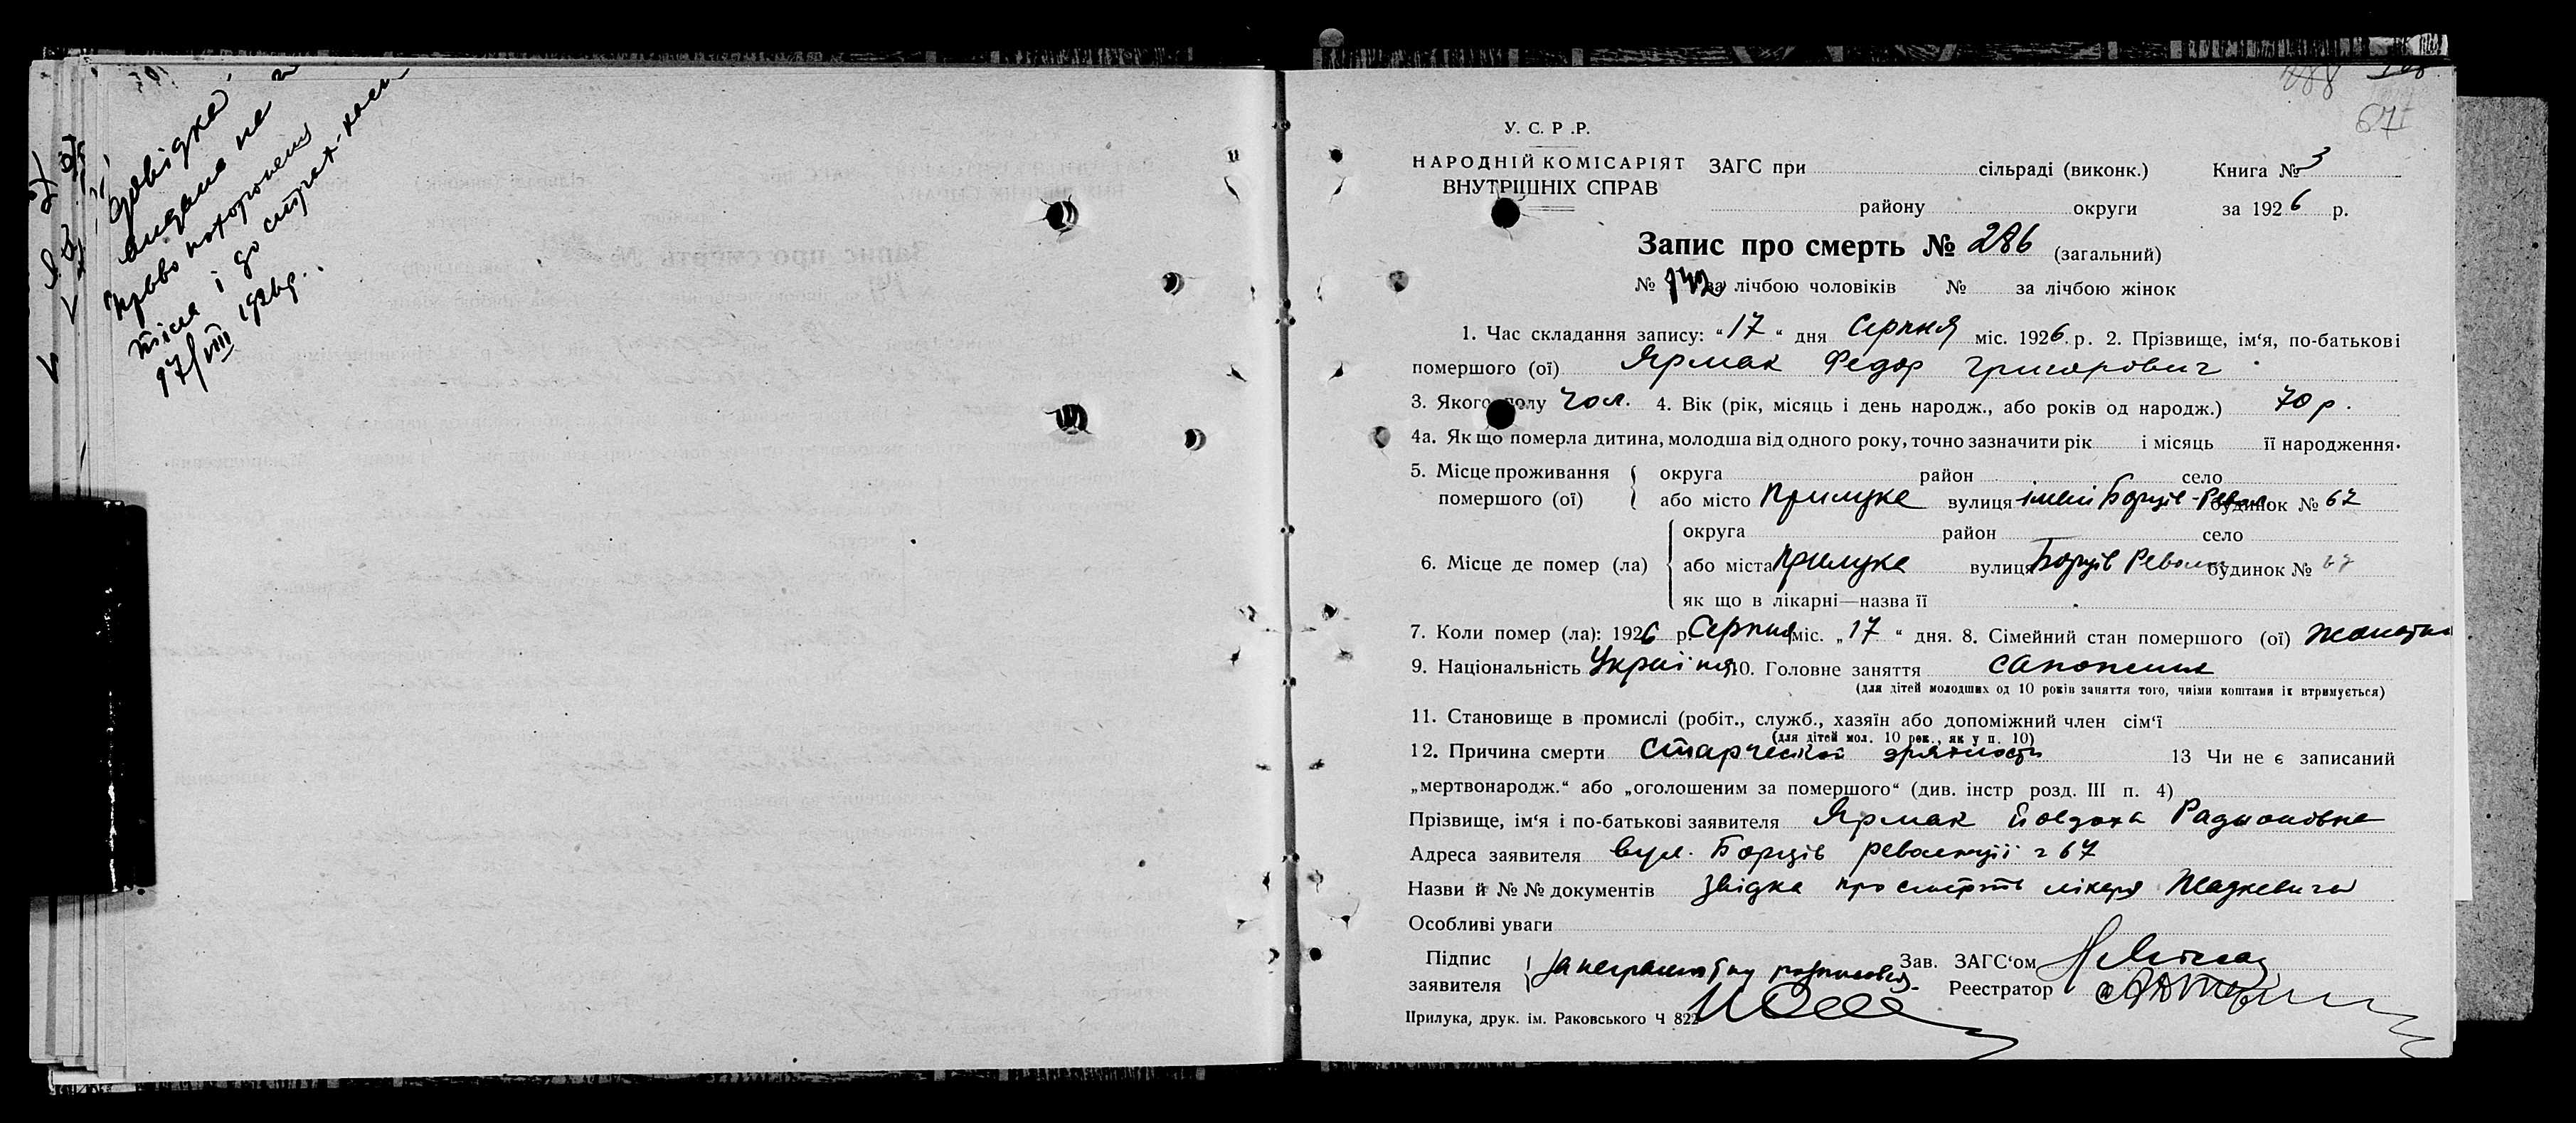 Довідка
видана на
право похоронення
тіла і до страх-каси
17/VIII 1926р.
288
67
У. С. Р .Р.
НАРОДНІЙ КОМІСАРІЯТ
ВНУТРІШНІХ СПРАВ
ЗАГС при сільраді (виконк.) Книга № 3
району округи за 1926 р.
Запис про смерть № 286 (загальний)
№ 142 за лічбою чоловіків № за лічбою жінок
1. Час складання запису: “17“ дня Серпня міс. 1926 р. 2. Прізвище, ім‘я, по-батькові
помершого (ої) Ярмак Федор Григорович
3. Якого полу чол. 4. Вік (рік, місяць і день народж., або років од народж.) 70 р.
4а. Як що померла дитина, молодша від одного року, точно зазначити рік і місяць її народження.
5. Місце проживання помершого (ої) округа район село
або місто Прилуке вулиця імені Борців-Револ. будинок № 67
6. Місце де помер (ла) округа район село
або міста Прилуке вулиця Борців Револю будинок № 67
як що в лікарні—назва її
7. Коли помер (ла): 1926 р. Серпня міс. „17“ дня. 8. Сімейний стан помершого (ої) жонатий
9. Національність Україн 10. Головне заняття сапожник
(для дітей молодших од 10 років заняття того, чиїми коштами їх втримується)
11. Становище в промислі (робіт., служб., хазяїн або допоміжний член сім‘ї
(для дітей мол. 10 рок., як у п. 10)
12. Причина смерти Старческой дряхлости 13 Чи не є записаний
„мертвонародж.“ або „оголошеним за помершого“ (див. інстр розд. III п. 4)
Прізвище, ім‘я і по-батькові заявителя Ярмак Йовдоха Радионовна
Адреса заявителя вул. Борців революції 67
Назви й № № документів звідка про смерть лікаря
Особливі уваги
Підпис заявителя За неграмотну росписався Зав. ЗАГС‘ом
Реестратор
Прилука, друк. ім. Раковського Ч 822